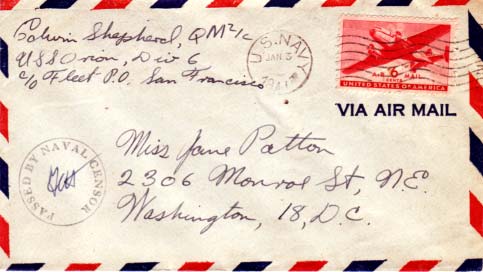 Edwin Shepherd, QM2/c
USS Orion, Div 6
c/o Fleet P.O. San Francisco
U.S. NAVY
JAN 3
AIR 6 MAIL
CENTS
UNITED STATES OF AMERICA
VIA AIR MAIL
PASSED BY NAVAL CENSOR
Miss Jane Patton
2306 Monroe St, N.E.
Washington, 18, D.C.